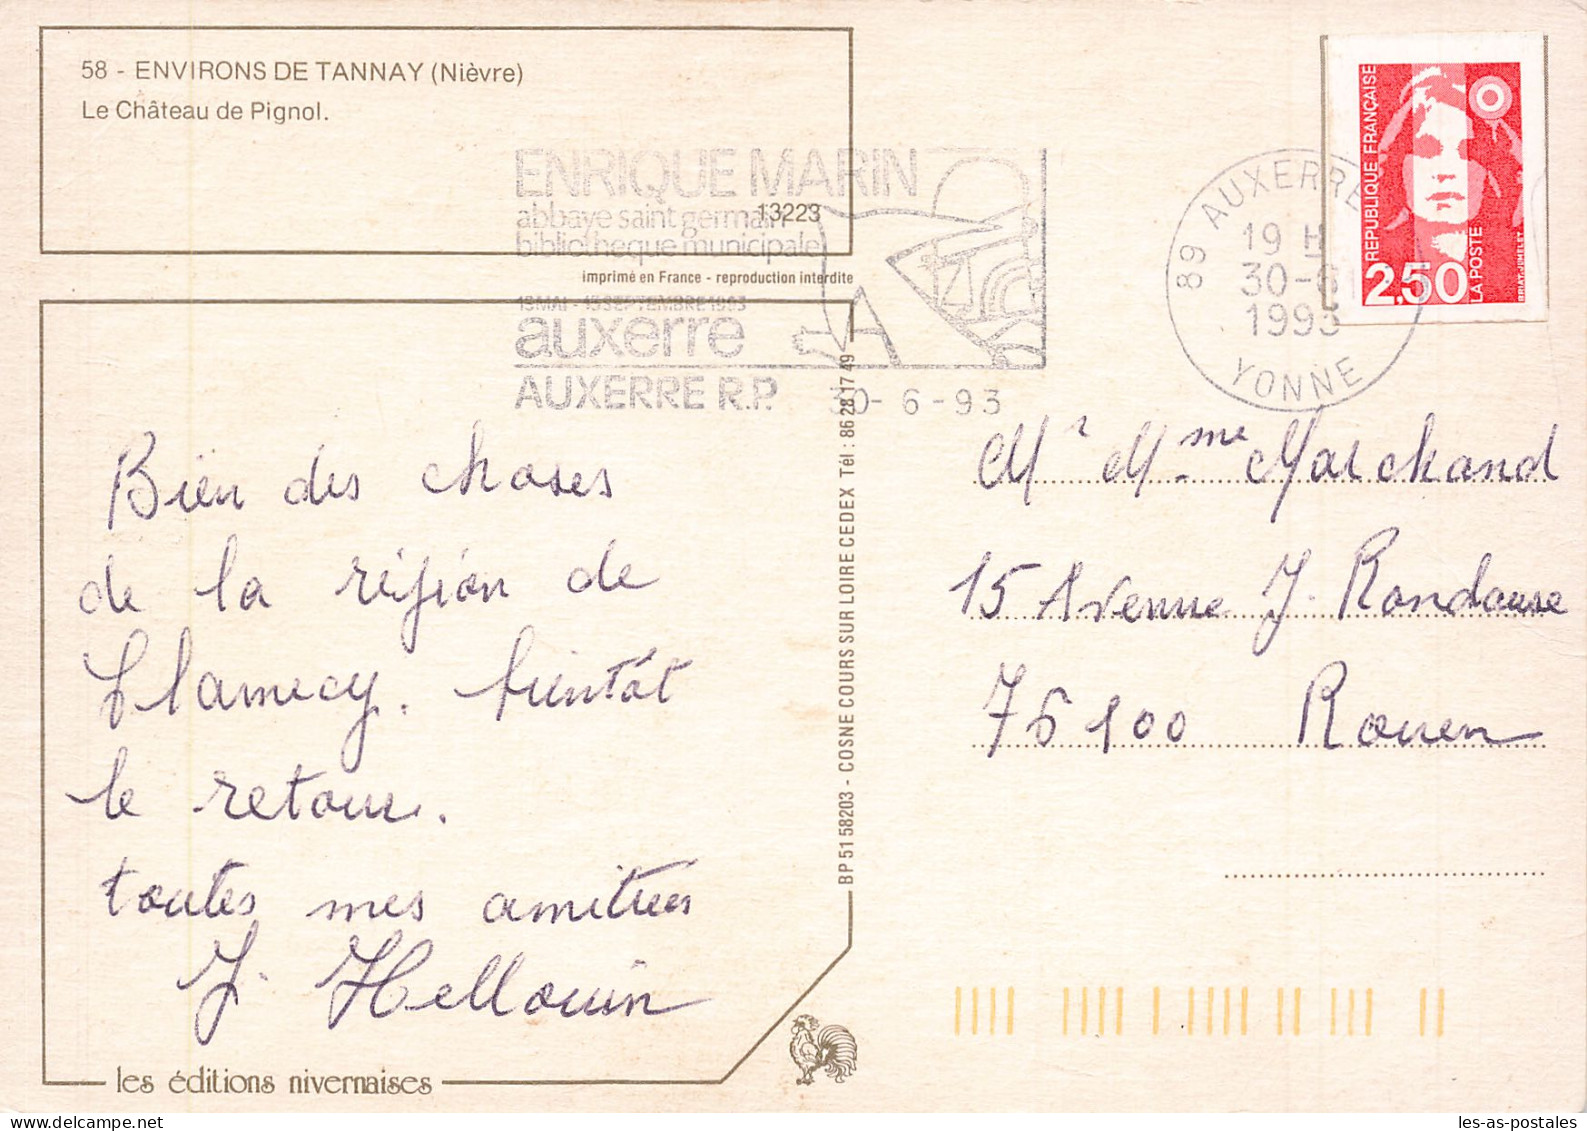 58 - ENVIRONS DE TANNAY (Nièvre)
Le Château de Pignol.
13223
imprimé en France - reproduction interdite
ENRIQUE MARIN
abbaye saint germain
bibliotheque municipale
13 MAI - 13 SEPTEMBRE 1993
auxerre
AUXERRE R.P. 30-6-93
89 AUXERRE
19 H
30-6
1993
YONNE
REPUBLIQUE FRANÇAISE
2,50
LA POSTE
BRIAT-JUMELET
Bien des choses
de la région de
Clamecy. bientôt
le retour.
toutes mes amitiés
J. Hellouin
BP 51 58203 - COSNE COURS SUR LOIRE CEDEX Tél : 86 28 17 49
Mr Mme Marchand
15 Avenue J. Rondeaux
76100 Rouen
les éditions nivernaises
les-as-postales